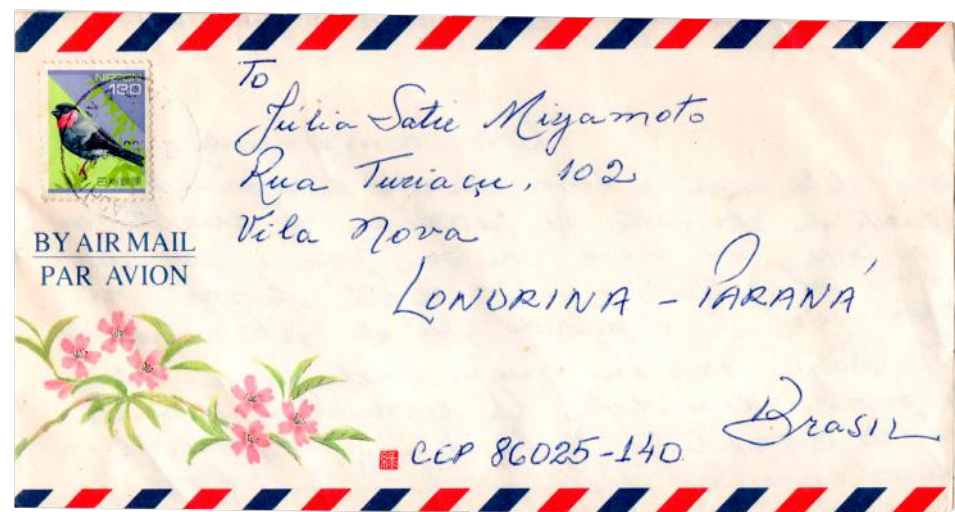 NIPPON
130
日本郵便
BY AIR MAIL
PAR AVION
To
Júlia Satie Miyamoto
Rua Turiaçu, 102
Vila Nova
LONDRINA - PARANÁ
BRASIL
CEP 86025-140